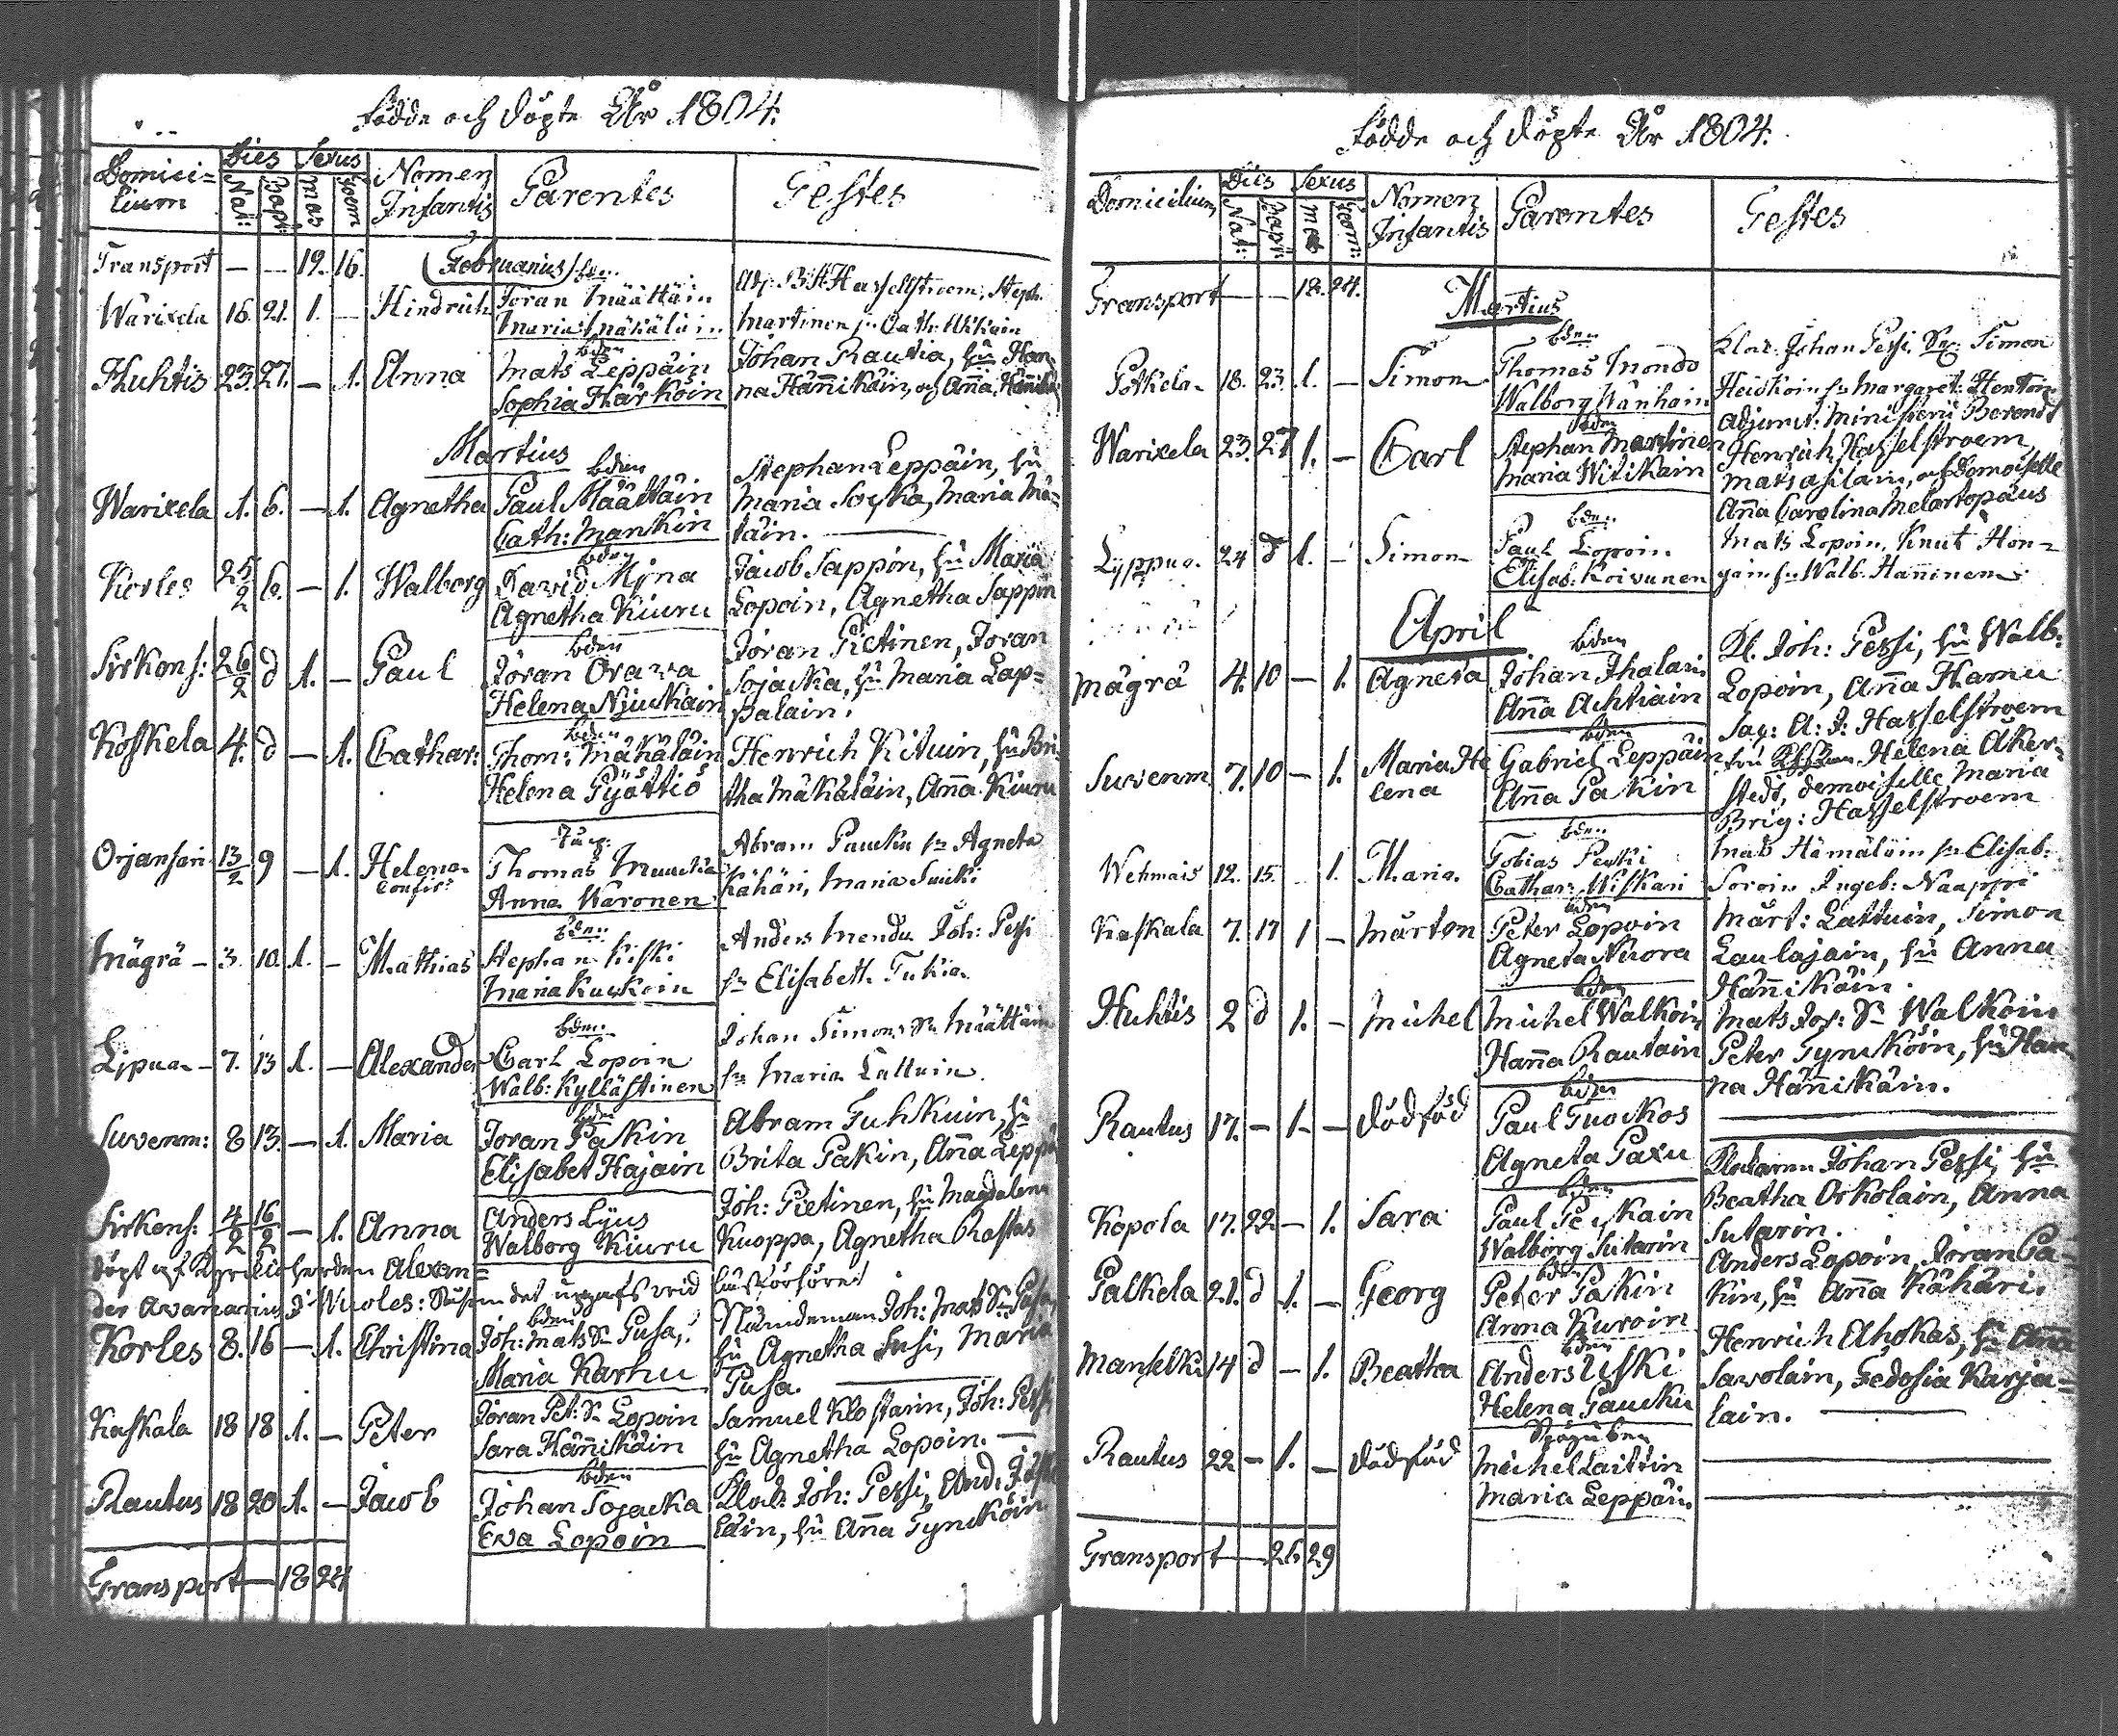 Födde och döpte År 1804.
Domici=
lium
Dies
Nat:
Bapt:
Sexus
Mas
Foem
Nomen
Infantis
Parentes
Testes
Transport — — 12. 16.
Februarius
bden
Warixela 16. 21. 1. — Hindrich Jöran Määttäin
Maria Mäkäläin
Adj. B H Hasselstroem, Steph.
Martinen
Huhtis 23. 27. — 1. Anna
bden
Mats Leppäin
Sophia Härköin
Johan Rautia, hu Han=
na Hännikäin, och Anna Hännikäin
Martius
Warixela 1. 6. — 1. Agnetha
bden
Paul Määttäin
Cath: Mankin
Stephan Leppäin, hu
Maria Sojka, Maria Mä=
täin.
Korles 25/2 6. — 1. Walborg
bden
David Myna
Agnetha Kiuru
Jacob Sappin, hu Maria
Lopoin, Agnetha Sappin
Sirkens: 26/2 d 1. — Paul
bden
Jöran Orawa
Helena Njuckain
Jöran Pietinen, Jöran
Sojacka, hu Maria Lap=
palain.
Koskela 4. d — 1. Cathar:
bden
Thom: Mäkäläin
Helena Pyöttiö
Henrich Kituin, hu Bri=
tha Mäkäläin, Anna Kiuru
Orjansari 13/2 9 — 1. Helena
Thomas
Anna Waronen
Abram Paucku hu Agneta
Kähäri, Maria Suicki
Mägrä — 3. 10. 1. — Mathias
bden
Stephan Kiski
Maria Kuckoin
Anders Mendu Joh: Pessi
hu Elisabeth Tukia
Lypua — 7. 13 1. — Alexander
bden
Carl Lopoin
Walb: Kyllästinen
Johan Simons Sn Määttäin
hu Maria Lattuin
Suvenm: 8 13. — 1. Maria
bden
Jöran Pakin
Elisabet Hajain
Abram Tuhkuin, hu
Brita Pakin, Anna Leppä
Sirkens: 4/2 16/2 — 1. Anna
Anders Lyus
Walborg Kiuru
Joh: Pietinen, hu Magdalena
Kuoppa, Agnetha Rastas
döpt af Kyrkioherden Alexan=
der Avanarius i Wuoles: det upgafs vid husförhöret
Korles 8. 16 — 1. Christina
bden
Joh: Mats Sn Pusa,
Maria Karhu
Nämdeman Joh: Mats Sn Pusa,
hu Agnetha Susi, Maria
Pusa.
Kaskala 18 18 1. — Peter
Jöran Pet: Sn Lopoin
Sara Hännikäin
Samuel Klostarin, Joh: Pessi
hu Agnetha Lopoin. —
Rautus 18 20 1. — Jacob
bden
Johan Sojacka
Eva Lopoin
Klock: Joh: Pessi, And:
hu Anna Tyncköin
Transport — 18 24
Födde och döpte År 1804.
Domicilium
Dies
Nat:
Bapt:
Sexus
Mas
Foem:
Nomen
Infantis
Parentes
Testes
Transport — — 18. 24.
Martius
Potkela 18. 23. 1. — Simon
bden
Thomas Mondo
Walborg Wänhain
Klock: Johan Pessi, Simon
Heiskoin hu Margaret: Henton
Warixela 23. 27 1. — Carl
bden
Stephan Martinen
Maria Witikain
Adjunct: Ministerii Berendt
Henrich Hasselstroem,
Mats Asilain, och Domoiselle
Anna Carolina Melartopæus
Lyppua 24 d 1. — Simon
bden
Paul Lopoin
Elisab: Koivunen
Mats Lopoin, Knut Hon=
gain hu Walb. Hanninen
April
Mägrä 4. 10 — 1. Agneta
bden
Johan Ihalain
Anna Achtiain
Kl. Joh: Pessi, hu Walb:
Lopoin, Anna Hamu
Suvenm 7. 10 — 1. Maria He
lena
bden
Gabriel Leppäin
Anna Pakin
Sac: A: J: Hasselstroem
Helena Aker=
stedt, demoiselle Maria
Brig: Hasselstroem
Wehmais 12. 15. 1. Maria
bden
Tobias Peuki
Cathar: Wiskari
Mats Hämäläin hu Elisab:
Soroin Ingeb: Naappi
Kaskala 7. 17 1 — Mårten
bden
Peter Lopoin
Agneta Nuora
Mårt: Lattuin, Simon
Laulajain, hu Anna
Hännikäin.
Huhtis 2 d 1. — Michel
bden
Michel Walkoin
Hanna Rautain
Mats Jos: Sn Walkoin
Peter Tyncköin, hu Han
na Hänikäin.
Rautus 17. — 1 — dödfød
bden
Paul Tuockos
Agneta Paxu
Kopola 17. 22 — 1. Sara
bden
Paul Peukain
Walborg Sutarin
Klockaren Johan Pessi, hu
Beatha Orkolain, Anna
Sutarin.
Palkela 21. d 1. — Georg
bden
Peter Pakin
Anna Kuroin
Anders Lopoin, Jöran Pa=
kin, hu Anna Kähäri.
Manselki 14 d — 1. Beatha
bden
Anders Uski
Helena Paucku
Henrich Ahokas, hu Anna
Savolain, Fedosia Karja=
lain. —
Rautus 22 — 1. — dödfød
Michel Laitiin
Maria Leppäin
Transport — 26 29